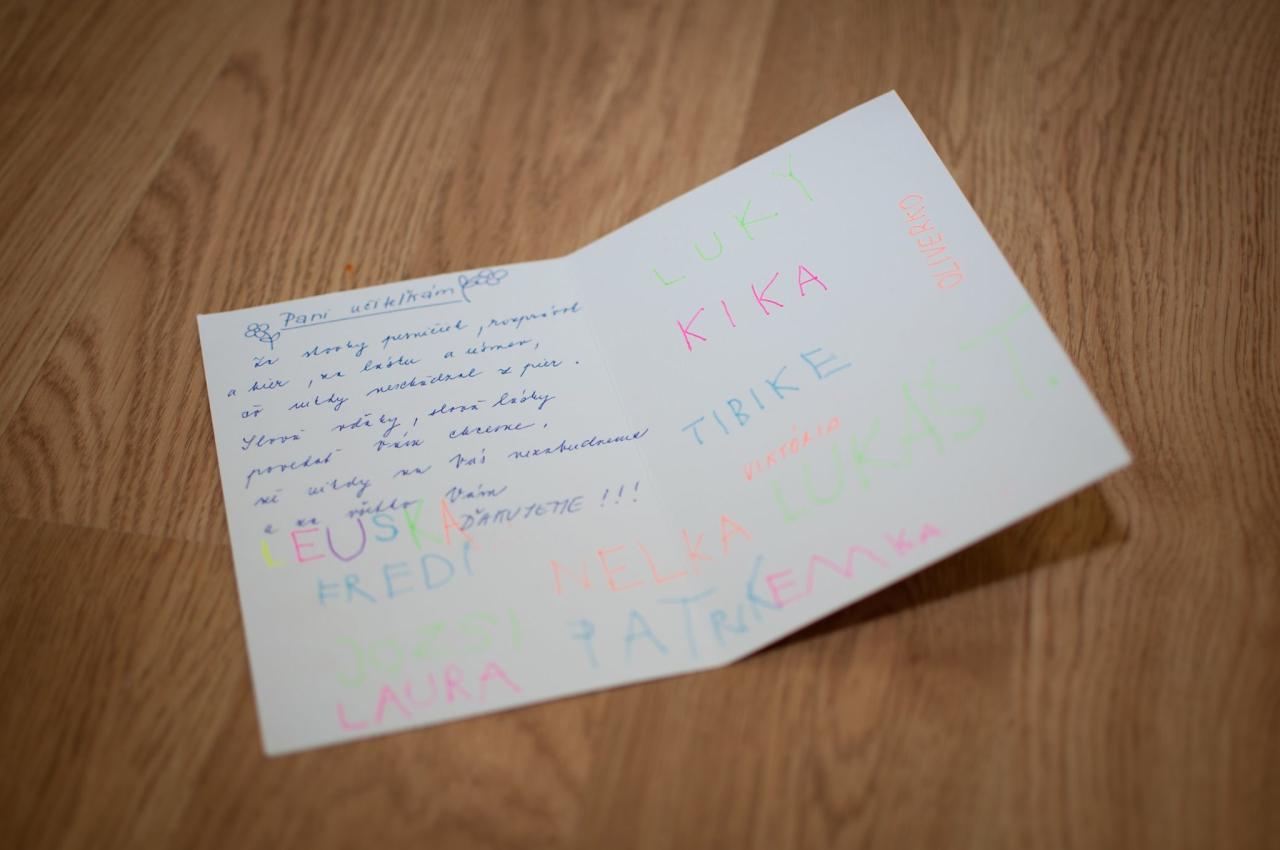 Pani učiteľkám
Za stovky pesničiek, rozprávok
a hier, za lásku a úsmev,
čo nikdy neschádzal z pier.
Slová vďaky, slová lásky
povedať Vám chceme,
že nikdy na Vás nezabudneme
a za všetko Vám
ĎAKUJEME !!!
LEUSKA
FREDI
JOZSI
LAURA
LUKY
OLIVERKO
KIKA
TIBIKE
VIKTÓRIA
LUKÁŠ T.
NELKA
PATRIK
EMKA